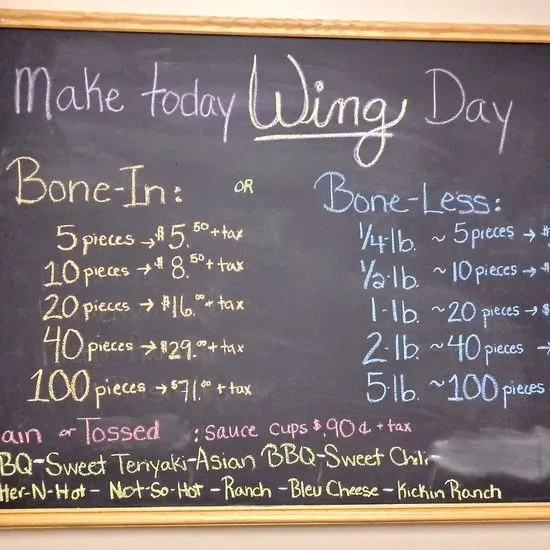 Make today Wing Day
Bone-In: OR Bone-Less:
5 pieces → $5.50 + tax 1/4 lb. ~ 5 pieces → $
10 pieces → $8.50 + tax 1/2 lb. ~ 10 pieces → $
20 pieces → $16.00 + tax 1-lb. ~ 20 pieces → $
40 pieces → $29.00 + tax 2-lb. ~ 40 pieces →
100 pieces → $71.00 + tax 5-lb. ~ 100 pieces
ain or Tossed : sauce cups $.90¢ + tax
BQ - Sweet Teriyaki - Asian BBQ - Sweet Chili -
Her-N-Hot - Not-So-Hot - Ranch - Bleu Cheese - Kickin Ranch